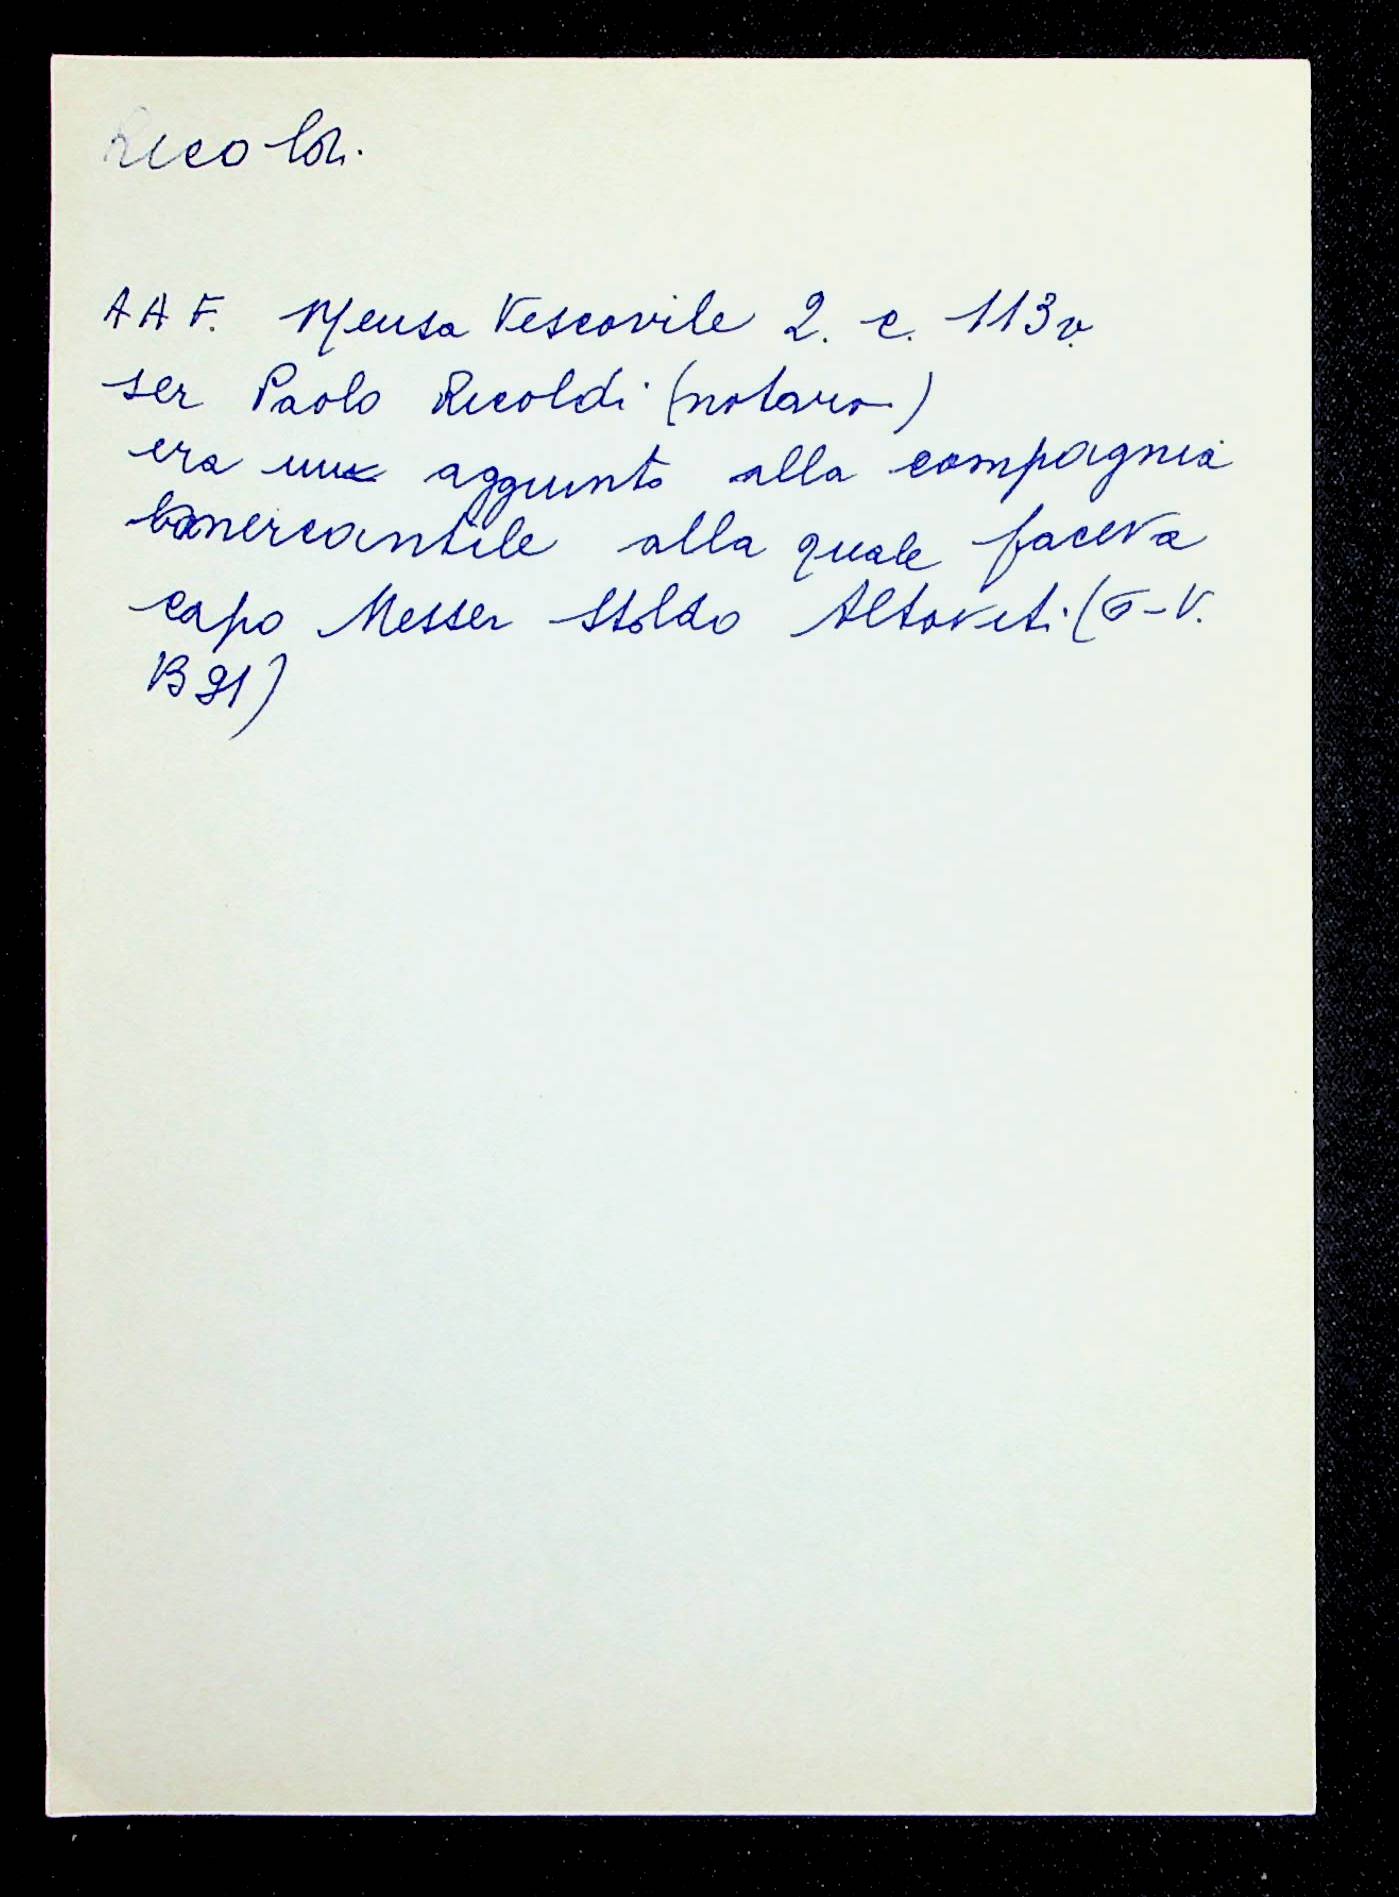 Ricoldi
AAF. Mensa Vescovile 2. c. 113v.
ser Paolo Ricoldi (notaro)
era aggiunto alla compagnia
mercantile alla quale faceva
capo Messer Stoldo Altoviti (G-V.
B91)